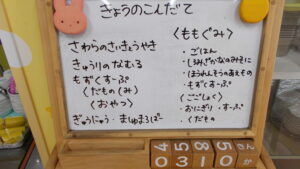 きょうのこんだて
さわらのさいきょうやき
きゅうりのなむる
もずくすーぷ
くだもの(み)
〈おやつ〉
ぎゅうにゅう・ましゅまろばー
〈ももぐみ〉
・ごはん
・ほうれんそうのあえもの
・もずくすーぷ
〈ごごしょく〉
・おにぎり・すーぷ
・くだもの